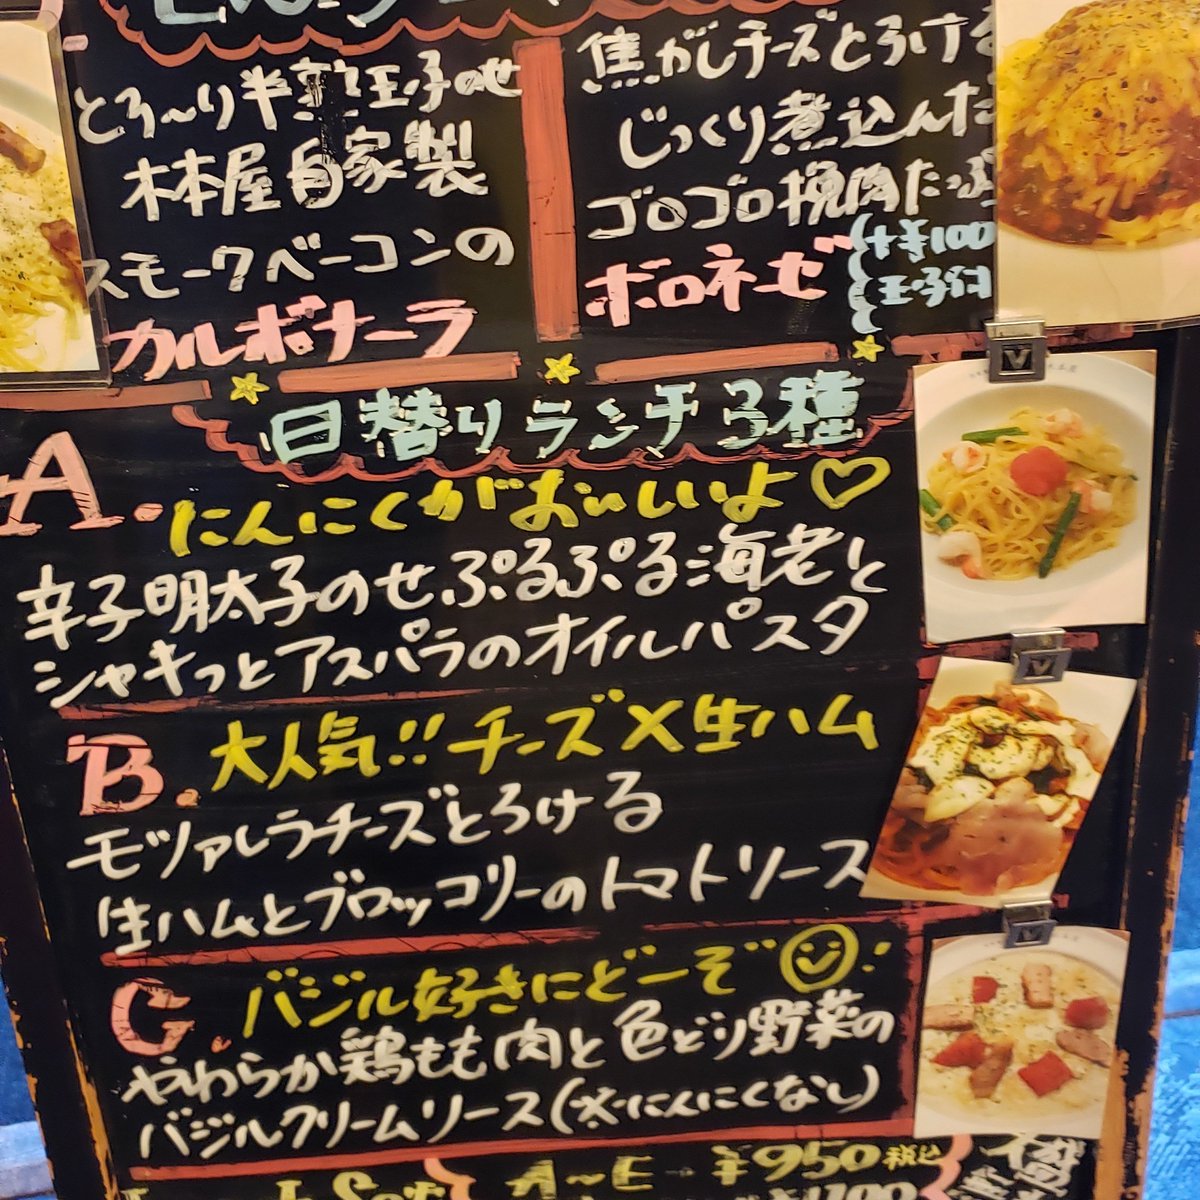 とろ〜り半熟玉子のせ
木本屋自家製
スモークベーコンの
カルボナーラ
焦がしチーズとろける
じっくり煮込んだ
ゴロゴロ挽肉たっぷ
ボロネーゼ
+¥100
玉子付
日替りランチ3種
A. にんにくがおいしいよ♡
辛子明太子のせぷるぷる海老と
シャキっとアスパラのオイルパスタ
B. 大人気!! チーズ×生ハム
モッツァレラチーズとろける
生ハムとブロッコリーのトマトソース
C. バジル好きにどーぞ
やわらか鶏もも肉と色どり野菜の
バジルクリームソース(※にんにくなし)
A〜E → ¥950税込